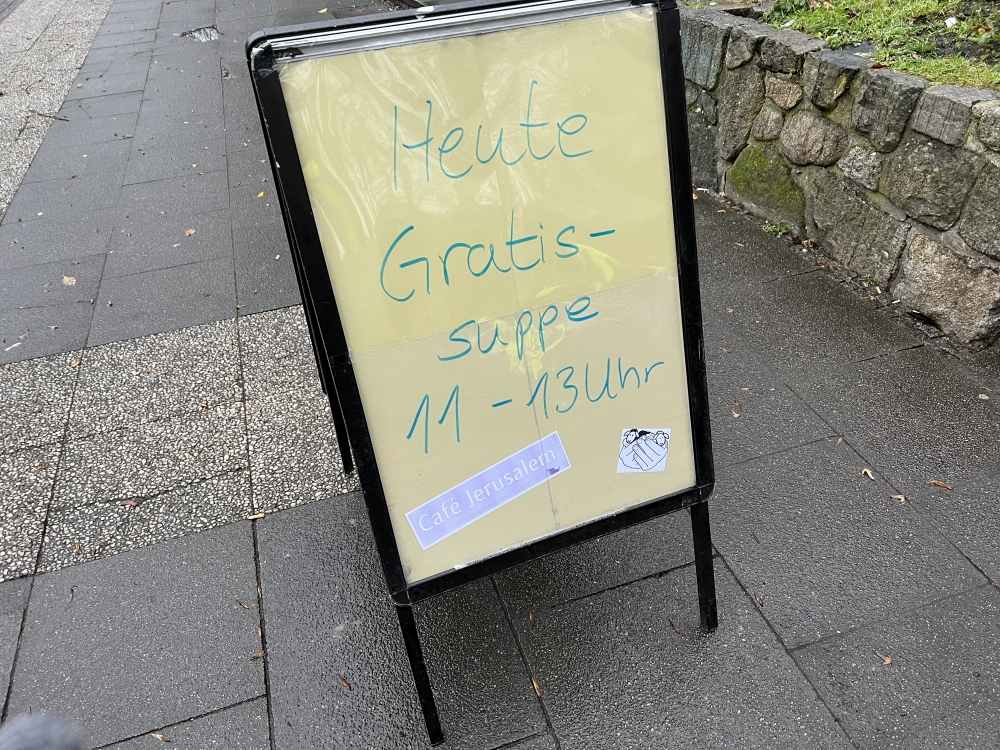 Heute
Gratis-
suppe
11 - 13 Uhr
Café Jerusalem